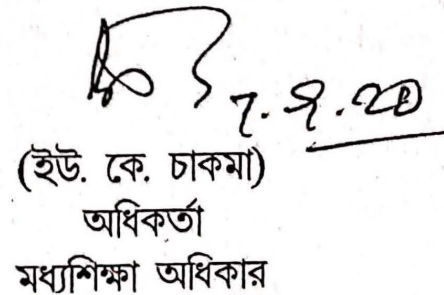 (ইউ. কে. চাকমা)
অধিকর্তা
মধ্যশিক্ষা অধিকার